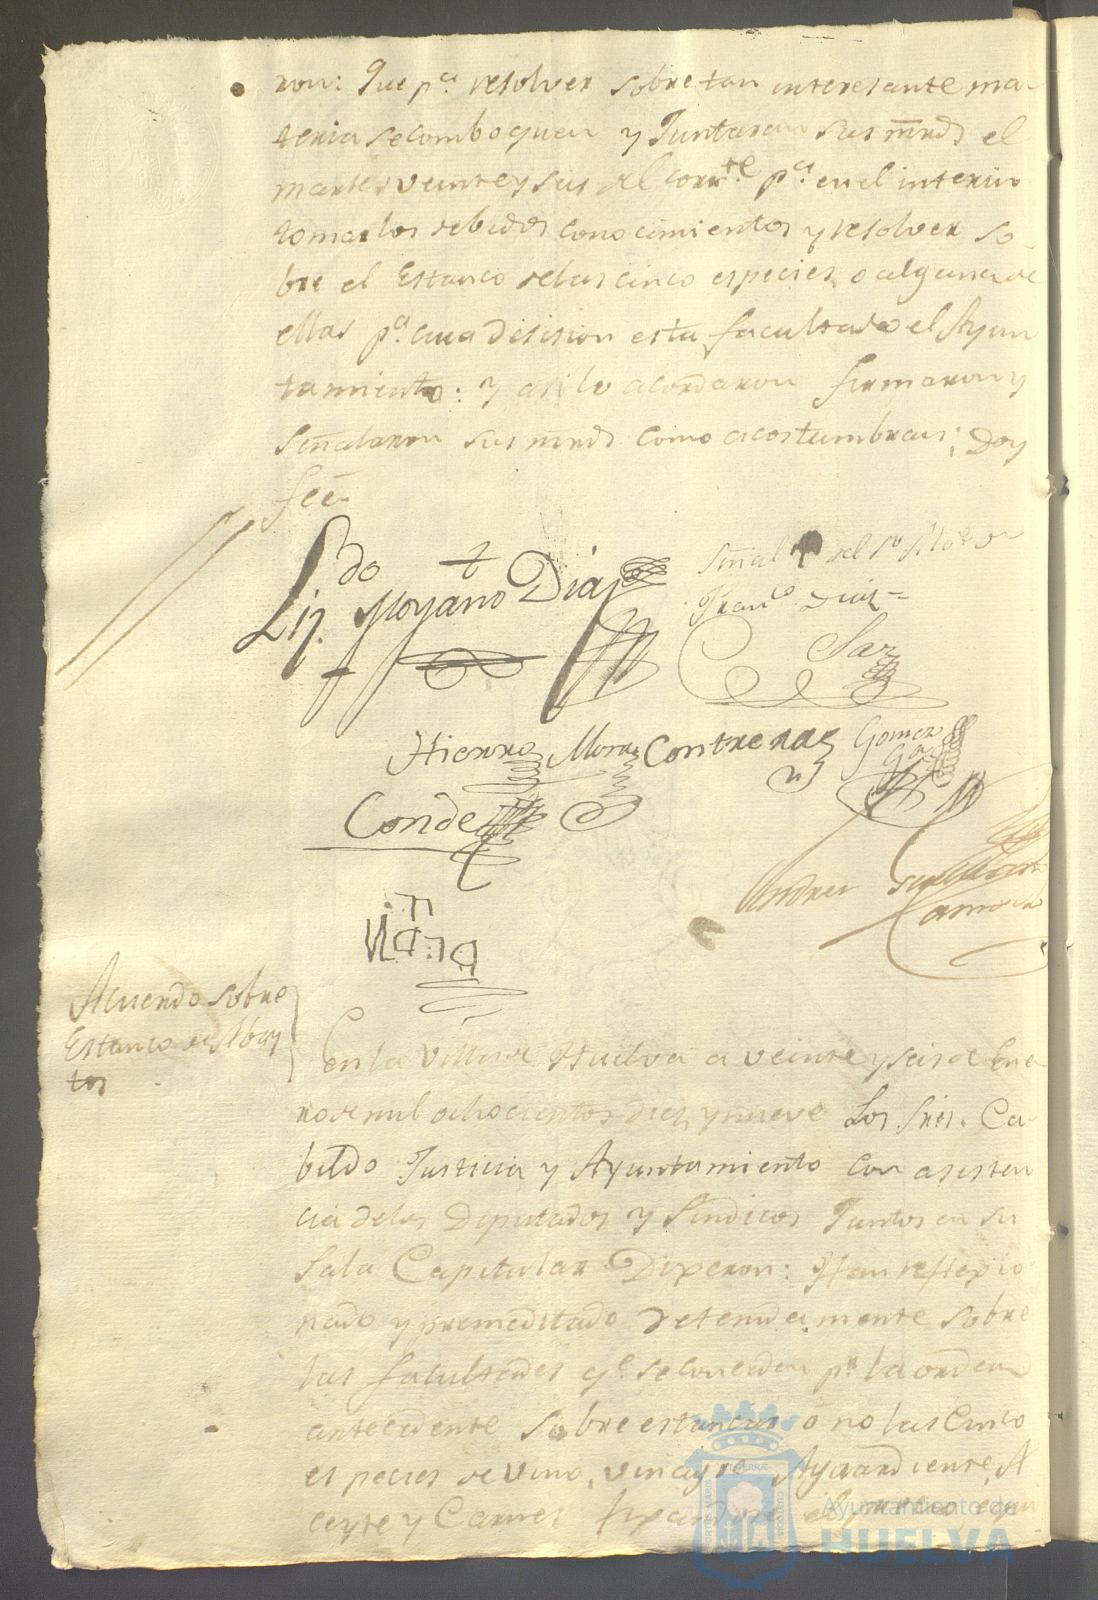 ron: Que p.ª resolver sobre tan interesante ma
teria se comboquen y Juntaran sus mrds el
martes veinte y seis del corr.te p.ª en el interin
tomar los debidos conocimientos y resolver so
bre el Estanco de las cinco especies, o alguna de
ellas p.ª cuia desision esta facultado el Ayun
tamiento: y asi lo acordaron firmaron y
señalaron sus mrds como acostumbran; Doy
feé
Liz.do Moyano Diaz
Señal del s.r
Fran.co Diaz
Saz
Hierro Mora Contreras Gomez
Conde
Andres
Viana
Acuerdo sobre
Estanco de Abas
tos
En la Villa de Huelva a veinte y seis de Ene
ro de mil ochocientos diez y nueve Los Sres. Ca
bildo Justicia y Ayuntamiento con asisten
cia de los Diputados y Sindicos Juntos en su
Sala Capitular Dixeron: Han reflexio
nado y premeditado detenidamente sobre
las facultades q.e se conceden p.r la orden
antecedente sobre estancar o no las Cinco
especies de vino, vinagre, Aguardiente, A
ceyte y Carnes
Ayuntamiento de
HUELVA